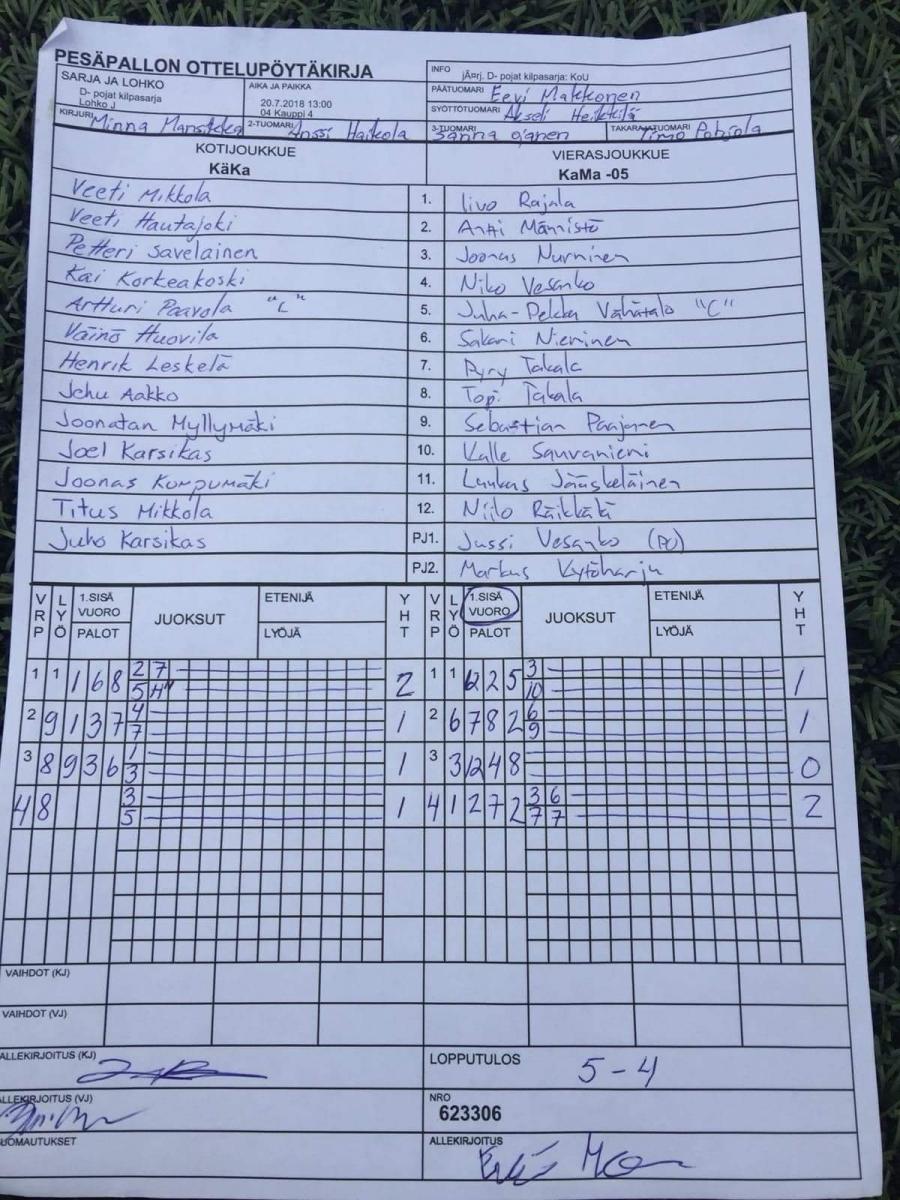 PESÄPALLON OTTELUPÖYTÄKIRJA
SARJA JA LOHKO
D- pojat kilpasarja
Lohko J
AIKA JA PAIKKA
20.7.2018 13:00
04 Kauppi 4
INFO jÃ¤rj. D- pojat kilpasarja: KoU
PÄÄTUOMARI Eevi Makkonen
SYÖTTÖTUOMARI Akseli Heikkilä
KIRJURI Minna 2-TUOMARI Anssi Haikola 3-TUOMARI Sanna Ojanen TAKARAJATUOMARI Timo Pohjola
KOTIJOUKKUE VIERASJOUKKUE
KäKa KaMa -05
Veeti Mikkola 1. Iivo Rajala
Veeti Hautajoki 2. Antti Männistö
Petteri Savelainen 3. Joonas Nurminen
Kai Korkeakoski 4. Niko Vesanko
Artturi Paavola "C" 5. Juha-Pekka Vähätalo "C"
Väinö Huovila 6. Sakari Nieminen
Henrik Leskelä 7. Pyry Takala
Juhu Aakko 8. Topi Takala
Joonatan Myllymäki 9. Sebastian Paajanen
Joel Karsikas 10. Kalle Sauvaniemi
Joonas Kumpumäki 11. Luukas Jääskeläinen
Titus Mikkola 12. Niilo Räikkätä
Juho Karsikas PJ1. Jussi Vesanko (PJ)
PJ2. Markus Kytöharju
VRP LYÖ 1.SISÄ VUORO PALOT JUOKSUT ETENIJÄ LYÖJÄ YHT VRP LYÖ 1.SISÄ VUORO PALOT JUOKSUT ETENIJÄ LYÖJÄ YHT
1 1 1 6 8 2 7 2 1 1 12 2 5 3 1
5 H" 10
2 9 1 3 7 4 1 2 6 7 8 2 6 1
7 9
3 8 9 3 6 1 1 3 3 12 4 8 0
3
4 8 3 1 4 1 2 7 2 3 6 2
5 7 7
VAIHDOT (KJ)
VAIHDOT (VJ)
ALLEKIRJOITUS (KJ) LOPPUTULOS 5-4
ALLEKIRJOITUS (VJ) NRO
623306
HUOMAUTUKSET ALLEKIRJOITUS